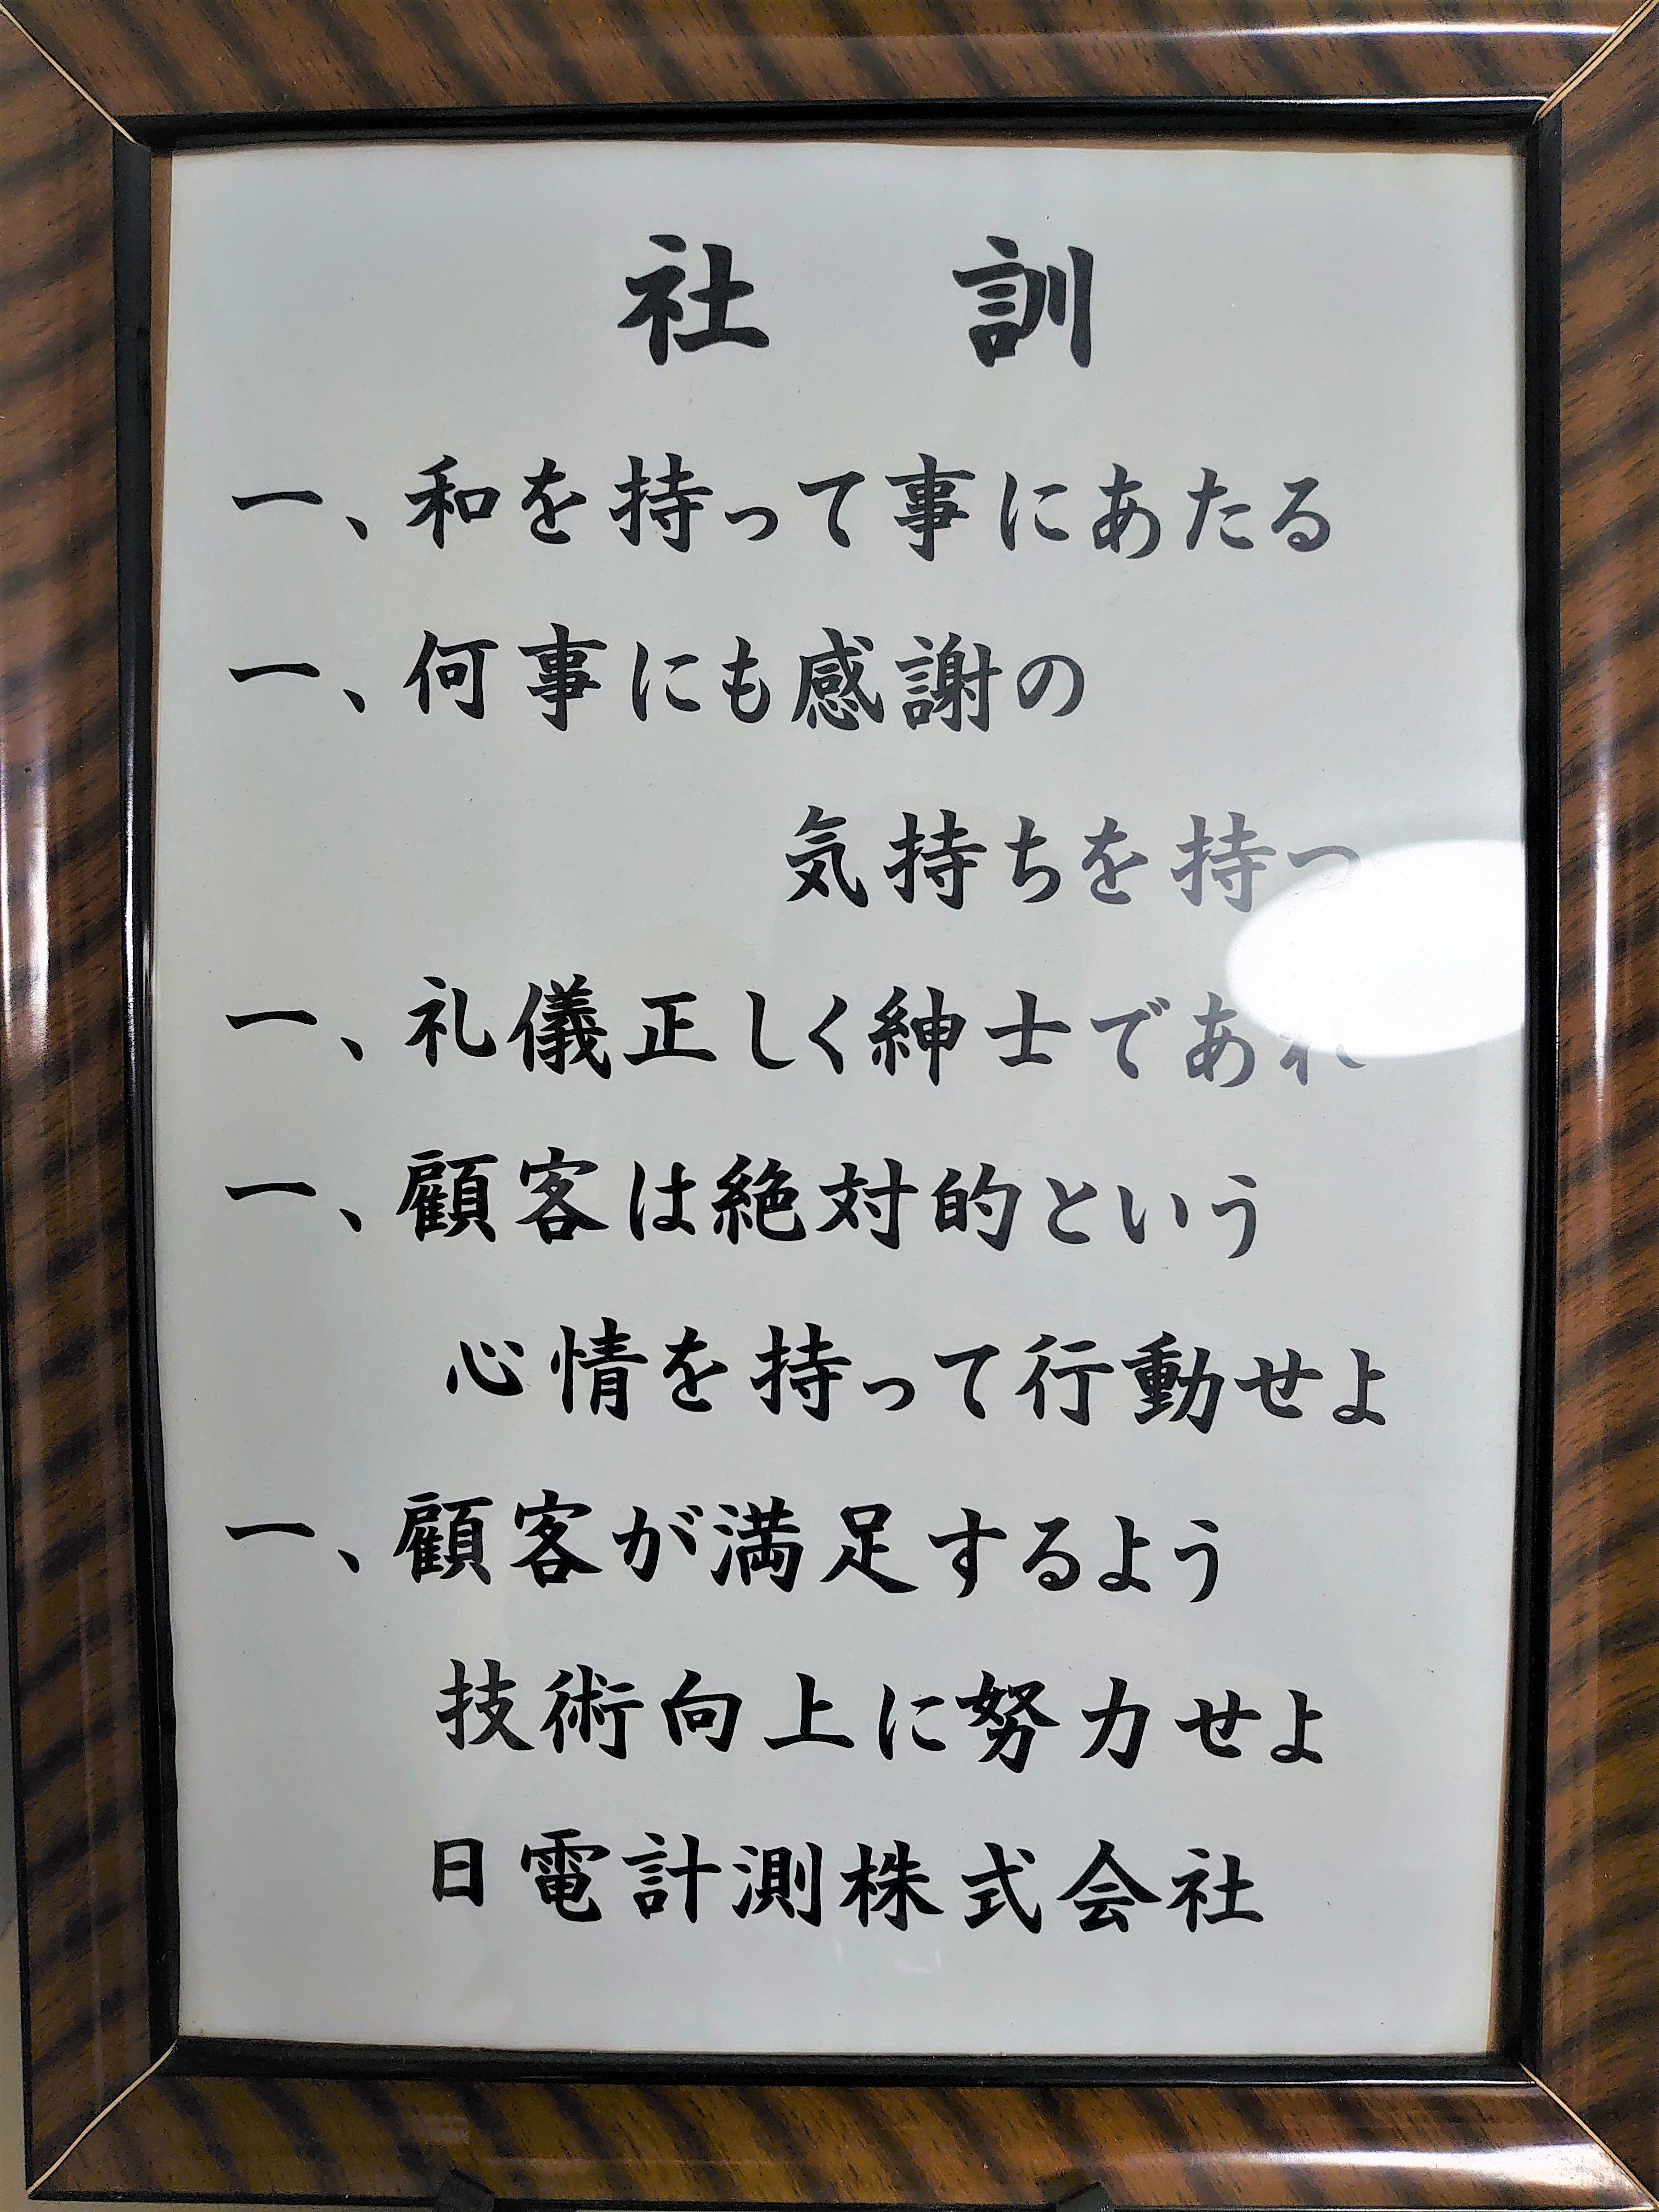 社 訓
一、和を持って事にあたる
一、何事にも感謝の
気持ちを持つ
一、礼儀正しく紳士であれ
一、顧客は絶対的という
心情を持って行動せよ
一、顧客が満足するよう
技術向上に努力せよ
日電計測株式会社